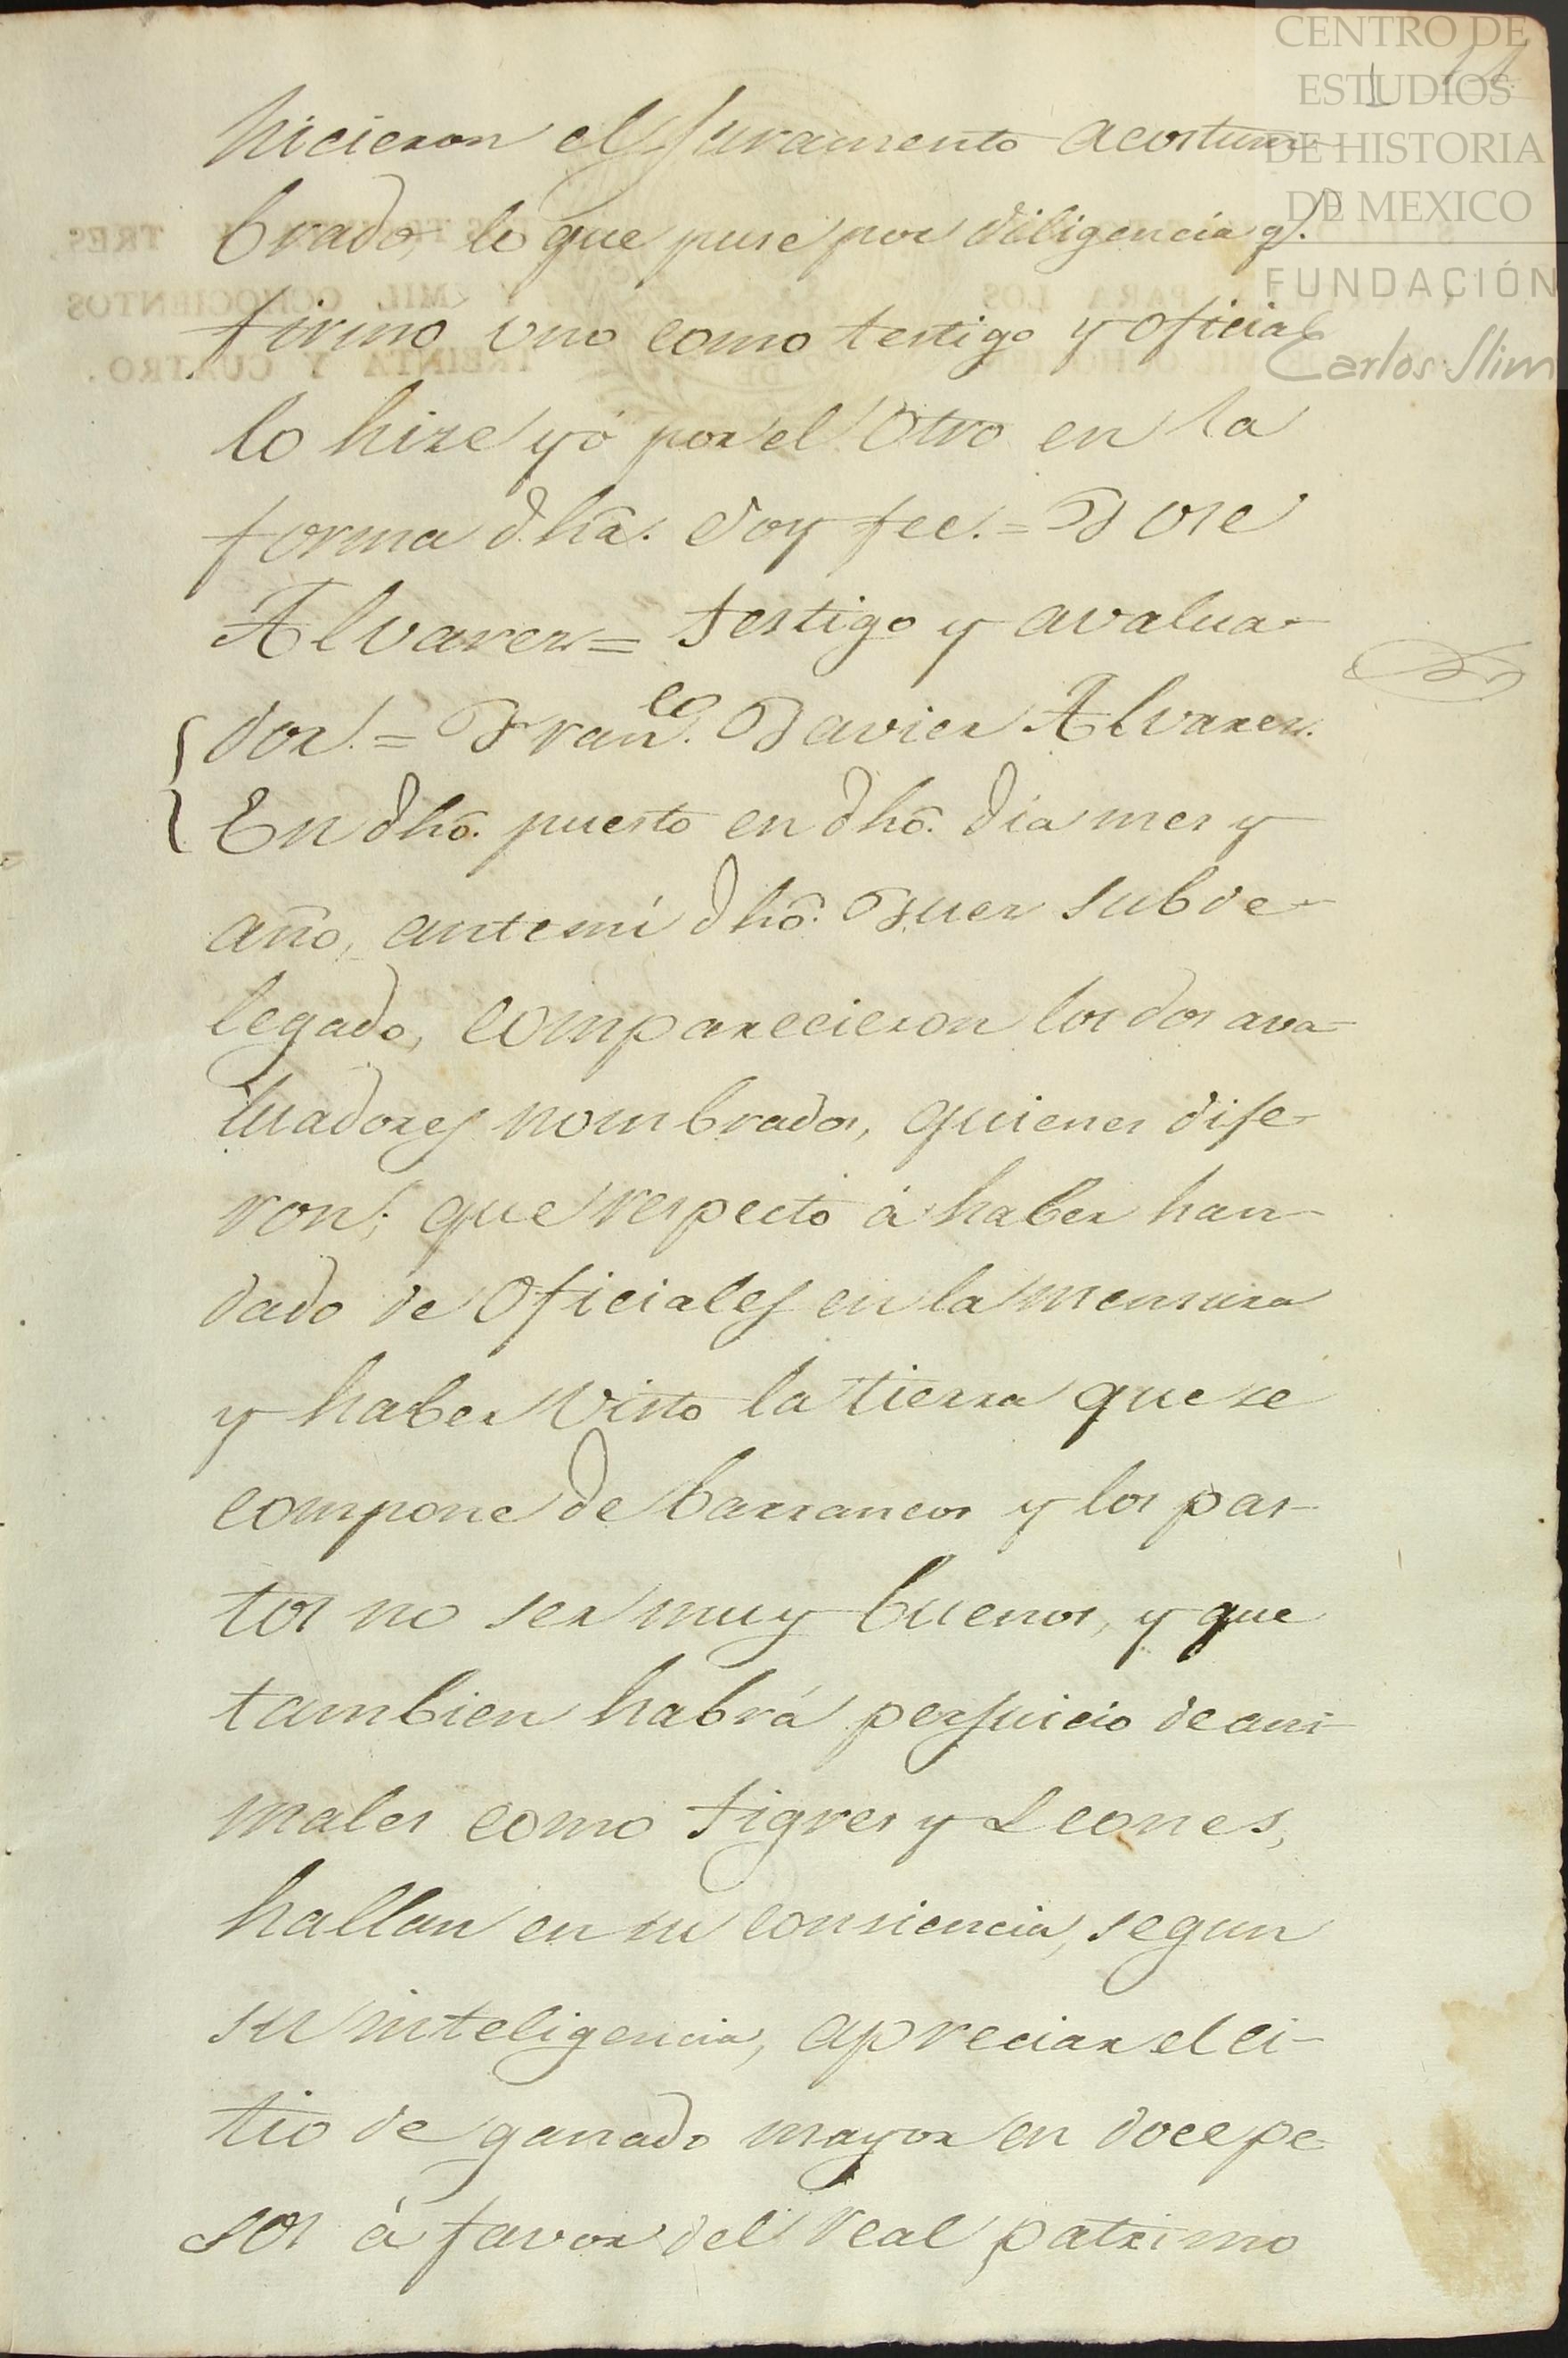 CENTRO DE
ESTUDIOS
DE HISTORIA
DE MEXICO
FUNDACIÓN
Carlos Slim
hicieron el juramento acostum-
brado, lo que puse por diligencia q.
firmó uno como testigo y oficial
lo hize yó por el otro en la
forma dhâ. doy fee. = Jose
Alvarez = testigo y avalua-
dor. = Fran.co Javier Alvarez.
En dhô. puesto en dhô. dia mes y
año, antemi dhô. Juez subde-
legado, comparecieron los dos ava-
luadores nombrados, quienes dije-
ron; que respecto á haber han-
dado de oficiales en la mensura
y haber visto la tierra que se
compone de barrancos y los pas-
tos no ser muy buenos, y que
tambien habrá perjuicio de ani-
males como tigres y Leones,
hallan en su consiencia, segun
su inteligencia, apreciar el ci-
tio de ganado mayor en doce pe-
sos á favor del real patrimo
TRES
Y MIL OCHOCIENTOS
PARA LOS
TREINTA Y CUATRO.